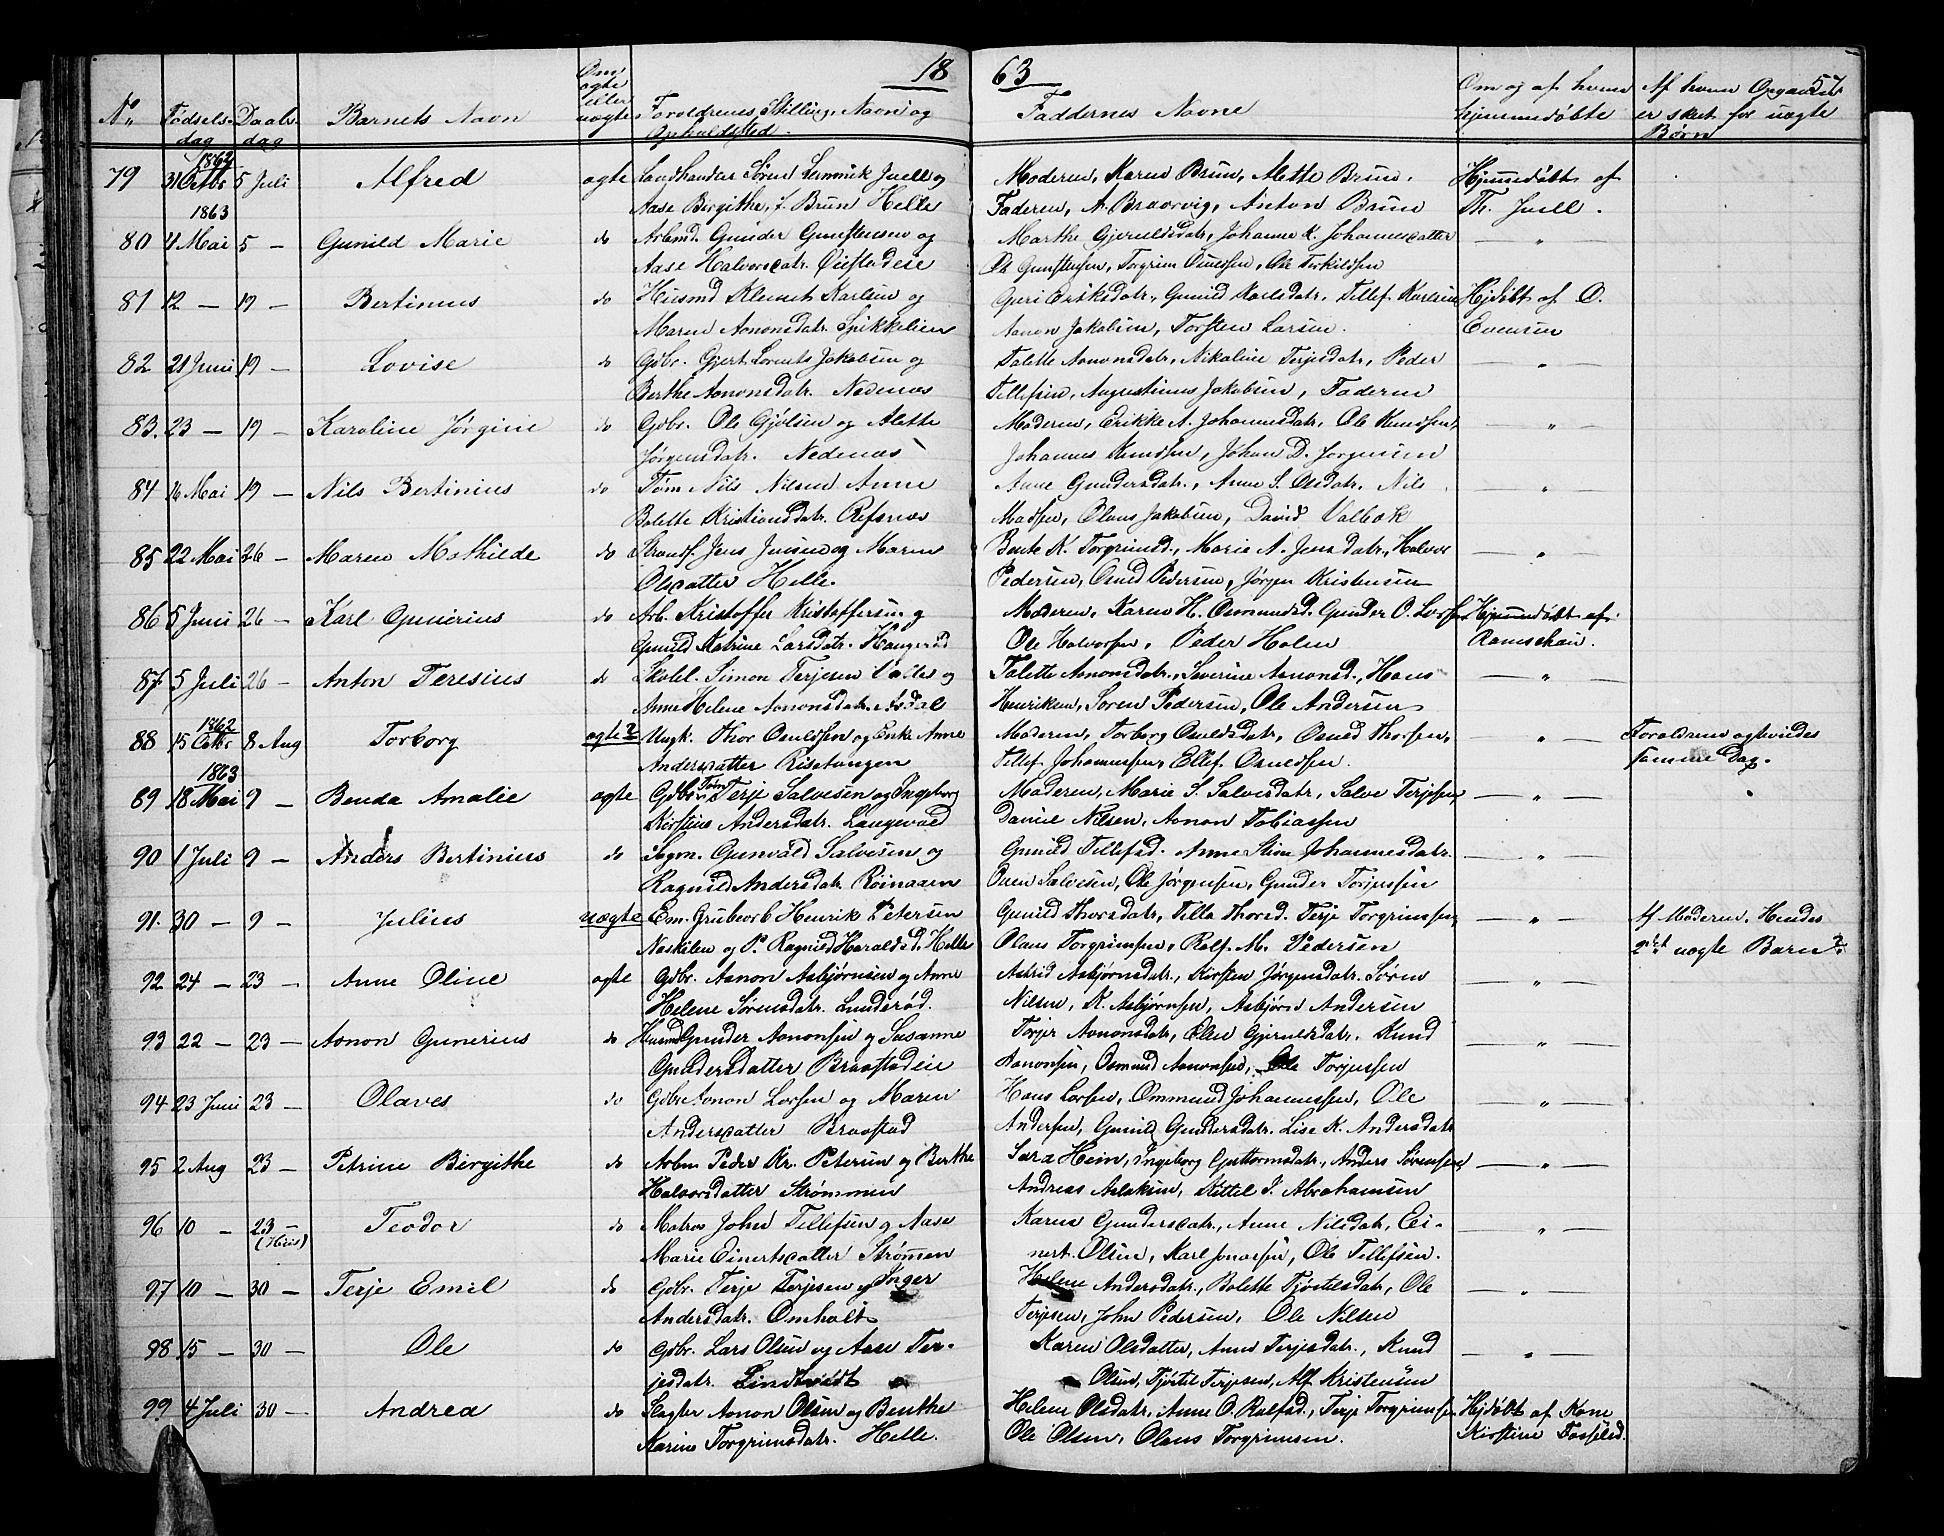 18 63
57
No Fødsels- Daabs- Barnets Navn Om ægte eller uægte Forældrenes Stilling, Navn og Faddernes Navne Om og af hvem Af hvem Opgaven
dag dag Opholdsted. hjemmedøbte er sket for uægte
Børn
1862
79 31 Octbr 5 Juli Alfred ægte Landhandler Søren Juell og Moderen, Karen Brun, Alette Brun. Hjemmedøbt af
Aase Birgithe, f. Brun Helle Faderen, A. Braarvig, Anton Brun Th. Juell.
1863
80 4 Mai 5 — Gunild Marie do Arbmd. Gunder Gunstensen og Marthe Gjeruldsdatr, Johanne K. Johannesdatter — " —
Aase Halvorsdatr. Øiestadeie Ole Gunstensen, Torgrim Osuldsen, Ole Terkildsen
81 12 — 19 — Bertinius do Husmd Klemet Karlsen og Guri Eriksdatr, Gunild Karlsdatr. Tellef Karlsen Hjdøbt af O.
Maren Aanonsdatr. Spikkelien Aanon Jakobsen, Torsten Larsen. Evensen
82 21 Juni 19 — Lovise do Gdbr. Gjert Jakobsen og Talette Aanonsdatr, Nikoline Terjesdatr, Peder — " —
Berthe Aanonsdatr. Nedenæs Tellefsen, Augustinus Jakobsen, Faderen
83. 23 — 19 — Karoline Jørgine do Gdbr. Ole Gjølsen og Alette Moderen, Erikke A. Johannesdatr, Ole Knudsen, — " —
Jørgensdatr. Nedenæs Johannes Knudsen, Johan D. Jørgensen
84 16 Mai 19 — Nils Bertinius do Tøm Nils Nilsen Anne Anne Gundersdatr., Anne S. Olsdatr, Nils — " —
Bolette Kristiansdatr. Refsnæs Madsen, Olaus Jakobsen, David Valbek
85 22 Mai 26 — Maren Mathilde do Strandf. Jens Jensen og Maren Bente K. Torgrimsd., Marie A. Jensdatr, Halvor — " —
Olsdatter Helle. Pedersen, Osuld Pedersen, Jørgen Kristensen
86 5 Juni 26 — Karl Gunerius do Arb. Kristoffer Kristoffersen og Moderen, Karen H. Osmundsd. Gunder O. Hjemmedøbt af
Gunild Katrine Larsdatr. Haugerød Ole Halvorsen, Peder Holen Ramschau.
87 5 Juli 26 — Anton Teresius do Skolel. Simon Terjesen og Talette Aanonsdatr., Severine Aanonsd., Hans — " —
Anne Helene Aanonsdatr. Asdal Henriksen, Søren Pedersen, Ole Andersen
1862
88 15 Octbr 8 Aug Torborg ægte? Ungk. Thor Osuldsen og Enke Anne Moderen, Torborg Osuldsdatr, Osuld Thorsen, — " — Forældrene ægteviedes
Andersdatter Risetangen Tellef Johannessen, Ellef Osuldsen. samme Dag.
1863
89 18 Mai 9 — Benda Amalie ægte Gdbr Tøm. Terje Salvesen og Ingeborg Moderen, Marie S. Salvesdatr, Salve Terjesen, — " —
Kirstine Andersdatr. Langevold Daniel Nilsen, Aanon Tobiassen
90 1 Juli 9 — Anders Bertinius do Sagm. Gunvald Salvesen og Gunild Tellefsd. Anne Stine Johannesdatr. — " —
Ragnild Andersdatr. Røinaaen Oven Salvesen, Ole Jørgensen, Gunder Torjussen
91. 30 — 9 — Julius uægte Em. Grubearb Henrik Petersen Gunild Thorsdatr, Tella Thorsd. Terje Torgrimsen, — " — Af Moderen. Hendes
Neskilen og P. Ragnild Haraldsd. Helle Olaus Torgrimsen, Ralf M. Pedersen 2det uægte Barn?
92 24 — 23 — Anne Oline ægte Gdbr. Aanon Asbjørnsen og Anne Astrid Asbjørnsdatr., Kirsten Jørgensdatr. Søren — " —
Helene Sørensdatr. Lunderød. Nilsen, K. Asbjørnsen, Asbjørn Andersen
93 22 — 23 — Aanon Gunerius do Husmd Gunder Aanonsen og Susanne Torjer Aanonsdatr, Olen Gjeruldsdatr. Knud — " —
Gundersdatter Braastadeie Aanonsen, Osmund Aanonsen, Ole Torjussen
94 23 Juni 23 — Olaves do Gdbr Aanon Larsen og Maren Hans Larsen, Ommund Johannessen, Ole — " —
Andersdatter Braastad Andersen, Gunild Gundersdatr. Lise K. Andersdatr
95 2 Aug 23 — Petrine Birgithe do Arbm. Peder Kr. Petersen og Berthe Sara Hein, Ingeborg Guttormsdatr, Anders Sørensen, — " —
Halvorsdatter Strømmen Andreas Aslaksen, Kittel J. Abrahamsen
96 10 — 23 Teodor do Matros John Tellefsen og Aase Karen Gundersdatr., Anne Nilsdatr, Ei- — " —
Marie Einertsdatter Strømen nert Olsen, Karl Jonassen, Ole Tellefsen.
97 10 — 30 — Terje Emil do Gdbr. Terje Terjesen og Inger Helene Andersdatr. Bolette Tjøstelsdatr., Ole — " —
Andersdatr. Omholt Terjesen, John Pedersen, Ole Nilsen
98 15 — 30 — Ole do Gdbr. Lars Olsen og Aase Ter- Karen Olsdatter, Anne Terjesdatr., Knud — " —
jesdatr. Lindtvedt Olsen, Tjøstel Terjesen, Alf Kristensen
99 4 Juli 30 — Andrea do Slagter Aanon Olsen og Benthe Helene Olsdatr, Anne O. Rolfsd., Terje Torgrimsen Hjdøbt af Kone
Marine Torgrimsdatr. Helle. Ole Olsen, Olaus Torgrimsen. Kirstine